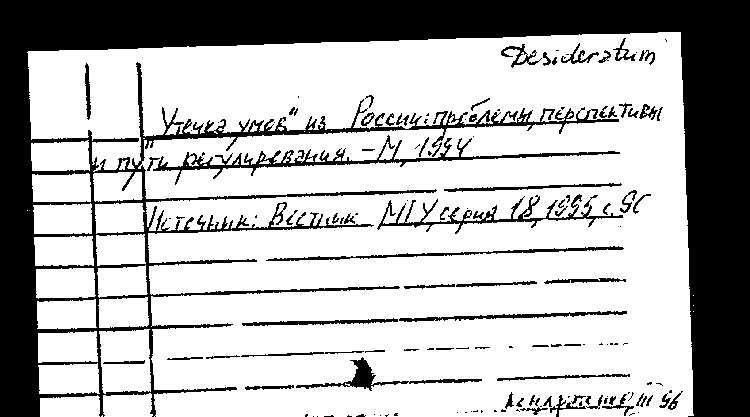 Desideratum
"Утечка умов" из России: проблемы, перспективы
и пути регулирования. – М, 1994
Источник: Вестник МГУ, серия 18, 1995, с.
III 96